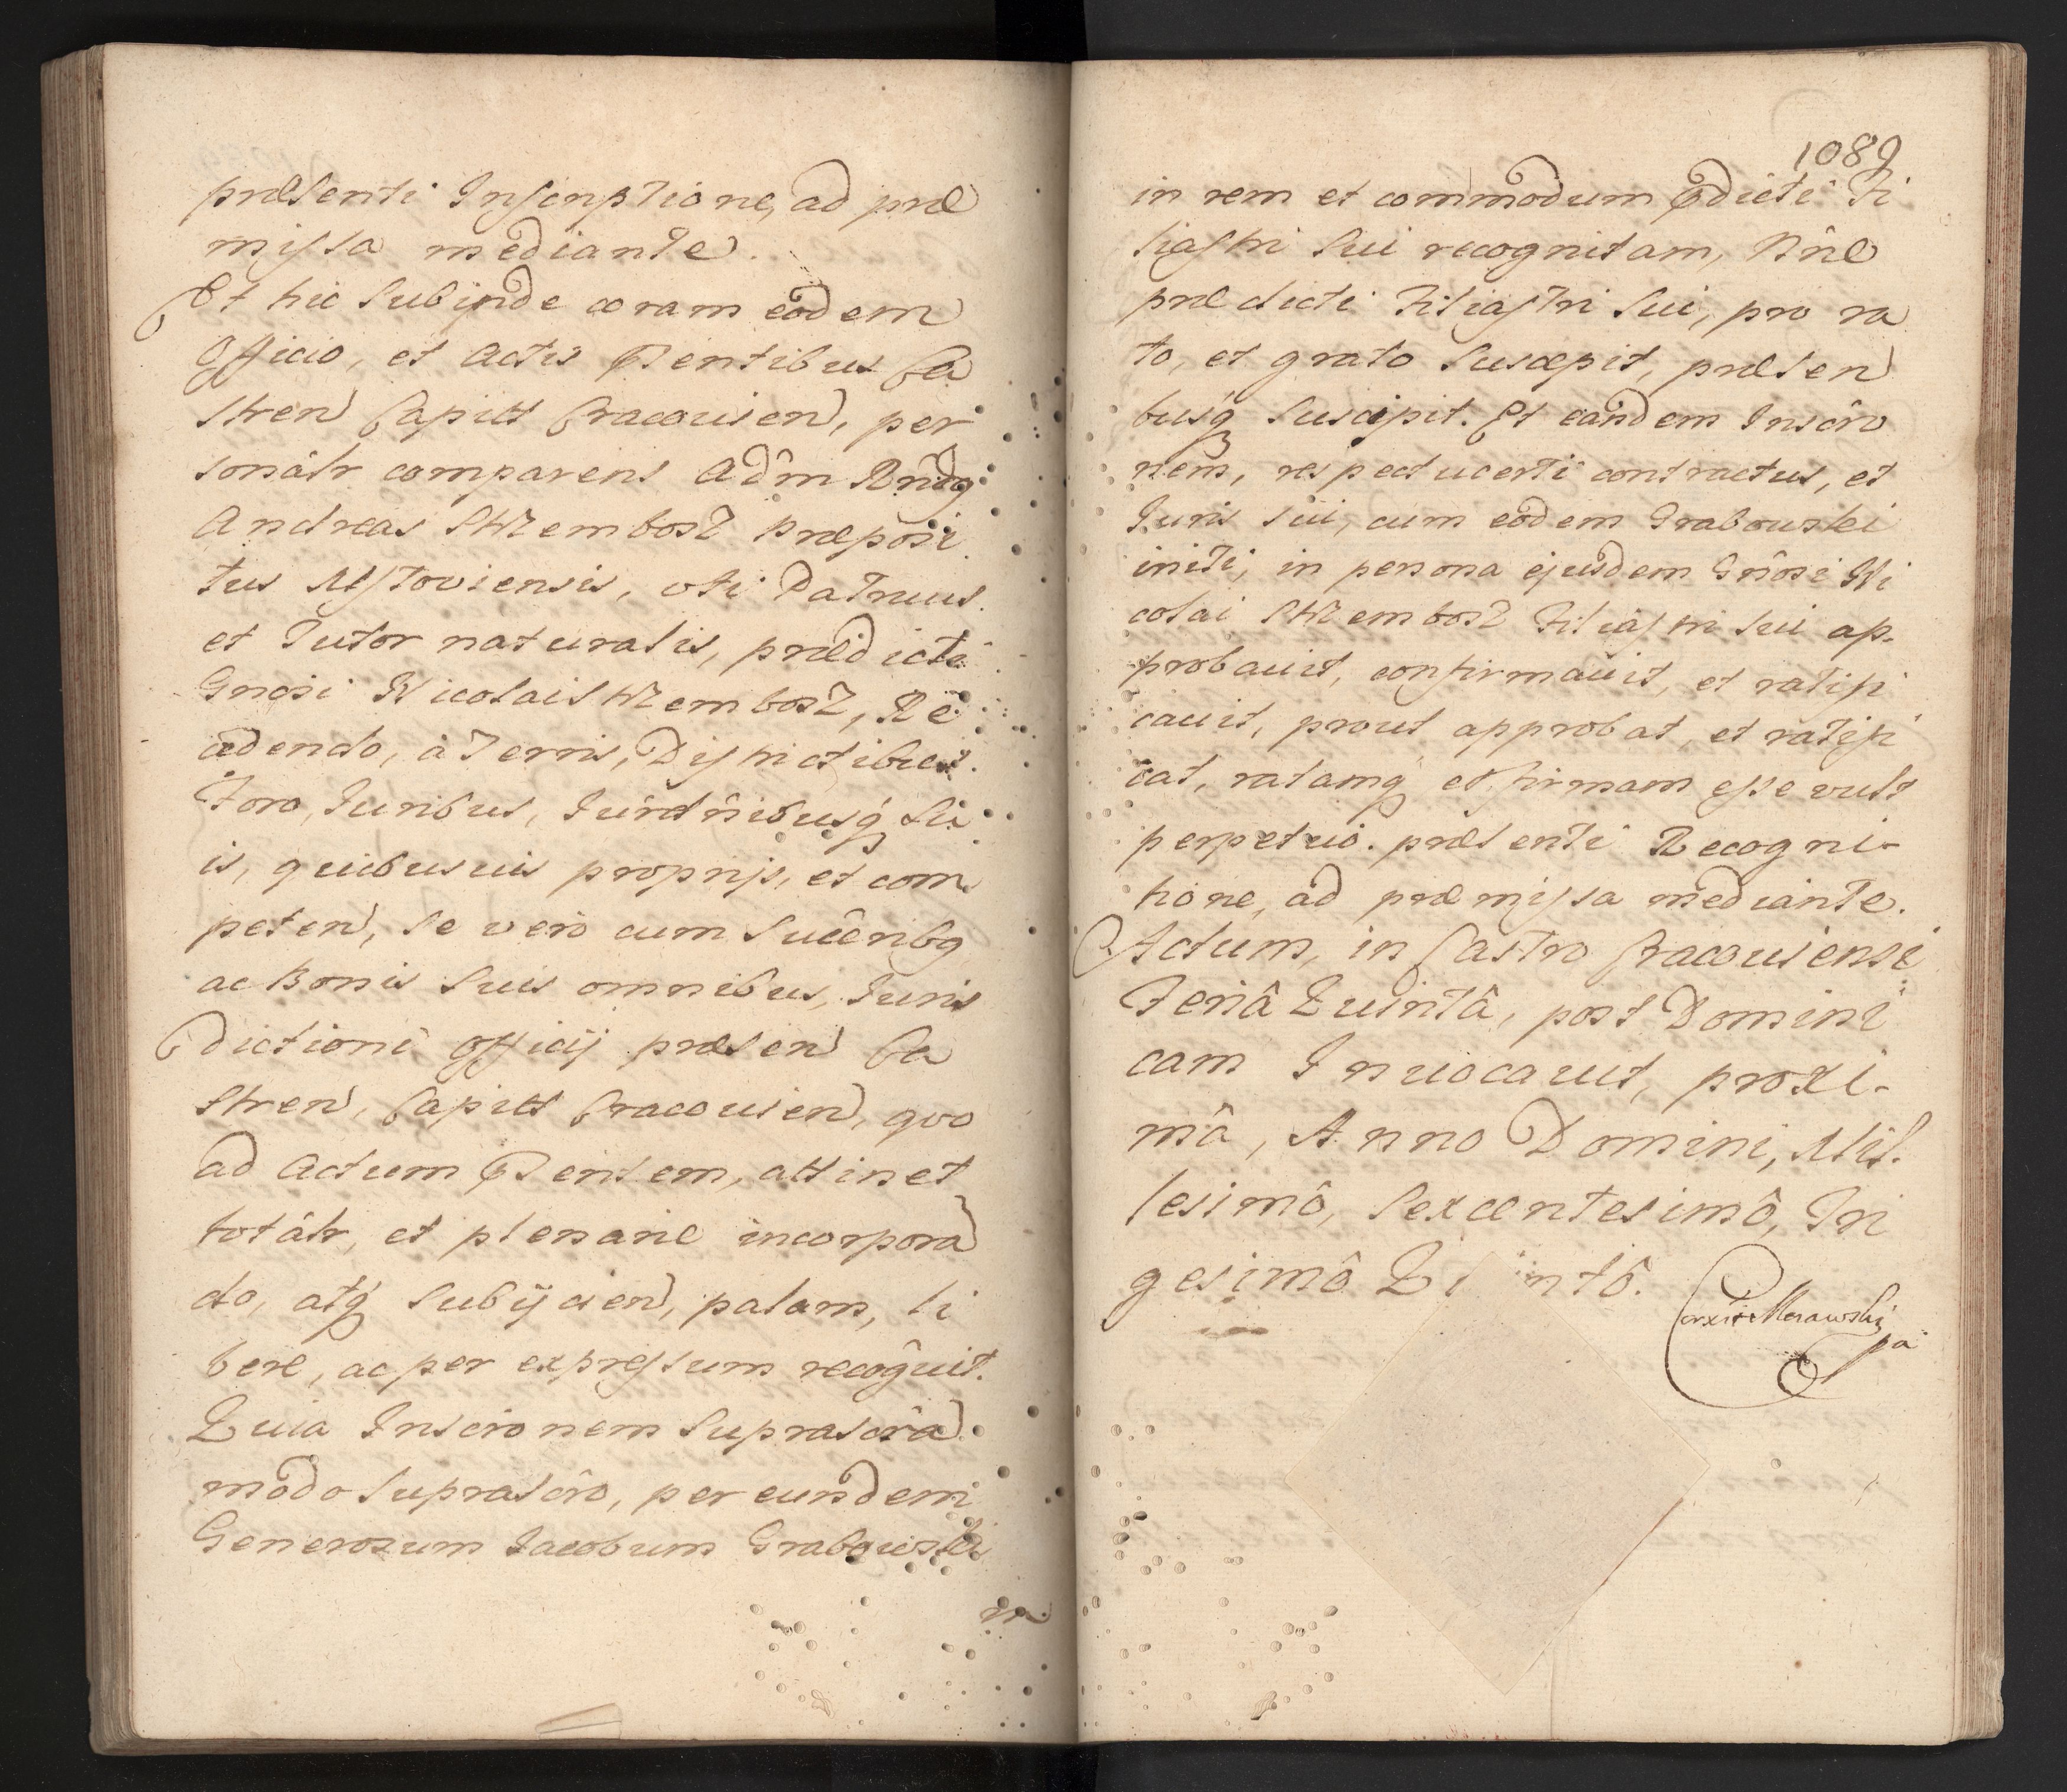 præsenti Inscriptione, ad præ
missa mediante.
Et hic subinde coram eodem
Officio, et Actis Pñtibus Ca
stren Capitt Cracouien, per
sonâlr comparens Adm Rñdꝰ
Andreas Strzembosz Præposi
tus Mstoviensis, uti Patruus
et Tutor naturalis, prædicti
Gnosi Nicolai Strzembosz, Re
cedendo, à Terris, Districtibus
Foro, Iuribus, Iurdnibusq́ Su
is, quibusuis proprijs, et com
peten, se vero cum Sucêribꝰ
ac Bonis suis omnibus, Iuris
dictioni Officij præsen Ca
stren, Capitt Cracouien, quo
ad Actum Pñtem, attinet
totâlr, et plenarie incorpora
do, atq́ subijcien, palam, li
bere, ac per expressum recôguit.
Quia Inscronem suprascrâ
modo suprascrô, per eundem
Generosum Iacobum Grabowski
in
1089
in rem et commodum Pdicti Fi
liastri sui recognitam, Nñe
prædicti Filiastri sui, pro ra
to, et grato suscepit, præsen
busq́ suscipit. Et eandem Inscrô
nem, respectu certi contractus, et
Iuris sui, cum eodem Grabowski
initi, in persona ejusdem Gnôsi Ni
colai Strzembosz Filiâstri sui ap-
probauit, confirmauit, et ratifi
cauit, prout approbat, et ratifi
cat, ratamq́ et firmam esse vult
perpetuo. præsenti Recogni-
tione, ad præmissa mediante.
Actum, in Castro Cracouiensi
Feriâ Quintâ, post Domini
cam Inuocauit, proxi-
mâ, Anno Domini, Mil-
lesimô, Sexcentesimô, Tri
gesimô Qu intô.
Morawski